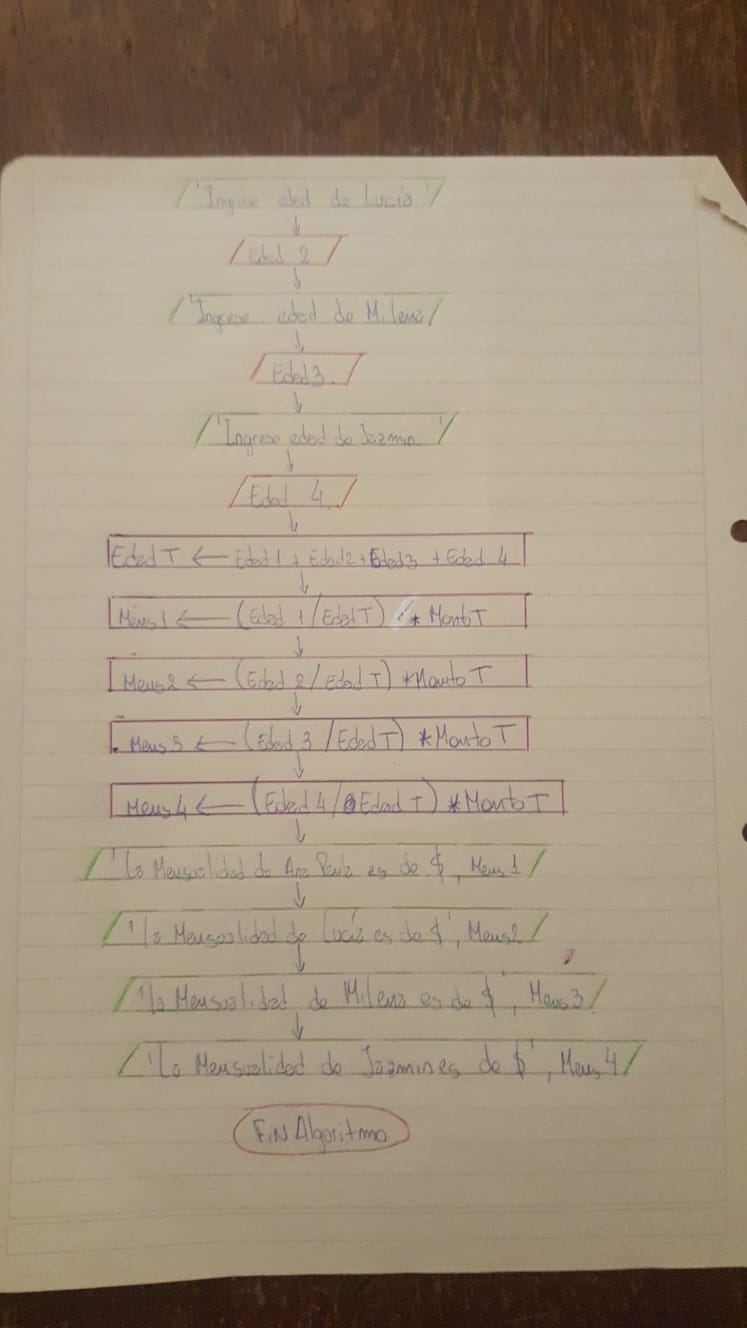 'Ingrese edad de Lucía'
Edad 2
'Ingrese edad de Milena'
Edad 3.
'Ingrese edad de Jazmin'
Edad 4
Edad T ← Edad 1 + Edad 2 + Edad 3 + Edad 4
Mens 1 ← (Edad 1 / Edad T) * Monto T
Mens 2 ← (Edad 2 / Edad T) * Monto T
Mens 3 ← (Edad 3 / Edad T) * Monto T
Mens 4 ← (Edad 4 / Edad T) * Monto T
'La Mensualidad de Ana Paula es de $', Mens 1
'La Mensualidad de Lucía es de $', Mens 2
'La Mensualidad de Milena es de $', Mens 3
'La Mensualidad de Jazmin es de $', Mens 4
FiN Algoritmo.